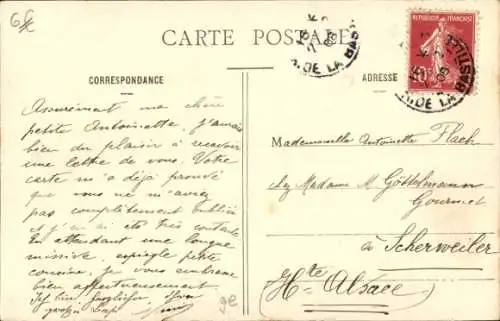 6€
CARTE POSTALE
CORRESPONDANCE
ADRESSE
REPUBLIQUE FRANÇAISE
10
R. DE LA BASTILLE
Assurément ma chère
petite Antoinette, j'aurais
bien du plaisir à recevoir
une lettre de vous. Votre
carte m'a déjà prouvé
que vous ne m'aviez
pas complètement oublié
et j'en ai été très contente
En attendant une longue
missive, espiègle petite
cousine, je vous embrasse
bien affectueusement
Ich bin
Mademoiselle Antoinette Flach
chez Madame M. Göttelmann
Gourmet
à Scherweiler
Hte Alsace
9€